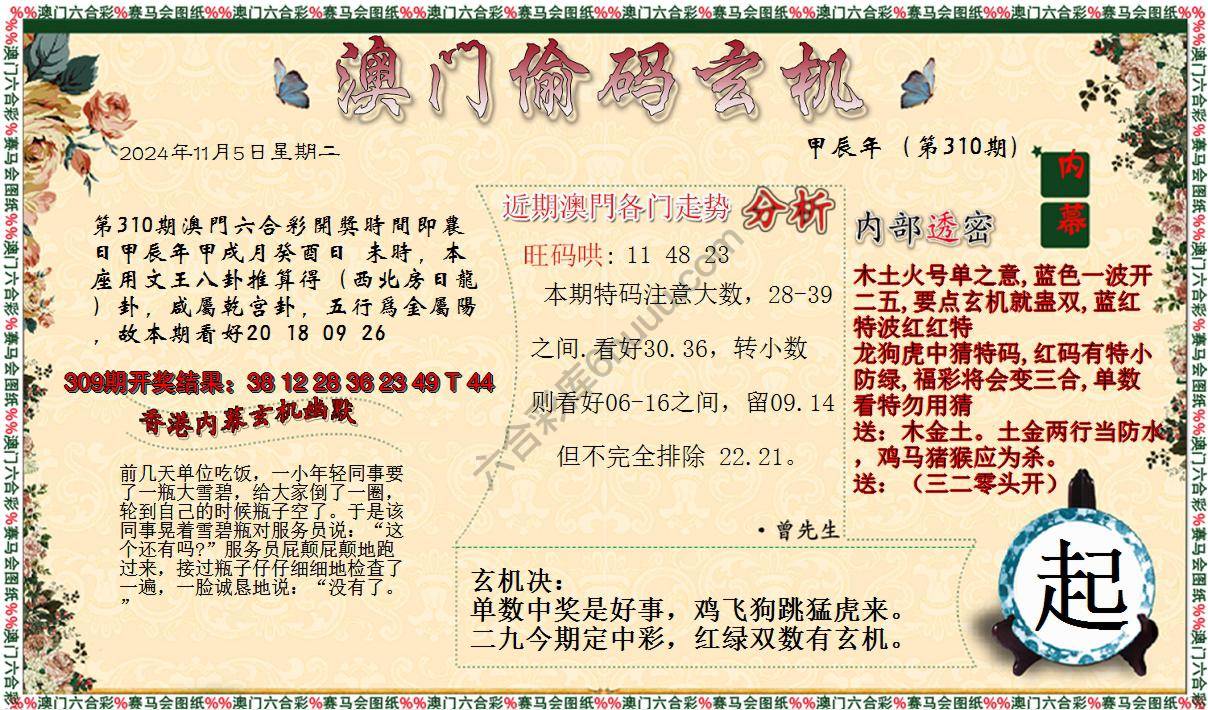 %%澳门六合彩%赛马会图纸%%澳门六合彩%赛马会图纸%%澳门六合彩%赛马会图纸%%澳门六合彩%赛马会图纸%%澳门六合彩%赛马会图纸%%澳门六合彩%赛马会图纸%%
澳门偷码玄机
2024年11月5日星期二
甲辰年（第310期）
内
幕
第310期澳門六合彩開獎時間即農
日甲辰年甲戌月癸酉日 未時，本
座用文王八卦推算得（西北房日龍
）卦，咸屬乾宫卦，五行爲金屬陽
，故本期看好20 18 09 26
309期开奖结果：38 12 28 36 23 49 T 44
香港内幕玄机幽默
前几天单位吃饭，一小年轻同事要
了一瓶大雪碧，给大家倒了一圈，
轮到自己的时候瓶子空了。于是该
同事晃着雪碧瓶对服务员说：“这
个还有吗?”服务员屁颠屁颠地跑
过来，接过瓶子仔仔细细地检查了
一遍，一脸诚恳地说：“没有了。
”
近期澳門各门走势 分析
旺码哄: 11 48 23
本期特码注意大数，28-39
之间.看好30.36，转小数
则看好06-16之间，留09.14
但不完全排除 22.21。
·曾先生
内部透密
木土火号单之意,蓝色一波开
二五,要点玄机就蛊双,蓝红
特波红红特
龙狗虎中猜特码,红码有特小
防绿,福彩将会变三合,单数
看特勿用猜
送：木金土。土金两行当防水
，鸡马猪猴应为杀。
送：（三二零头开）
玄机决：
单数中奖是好事，鸡飞狗跳猛虎来。
二九今期定中彩，红绿双数有玄机。
起